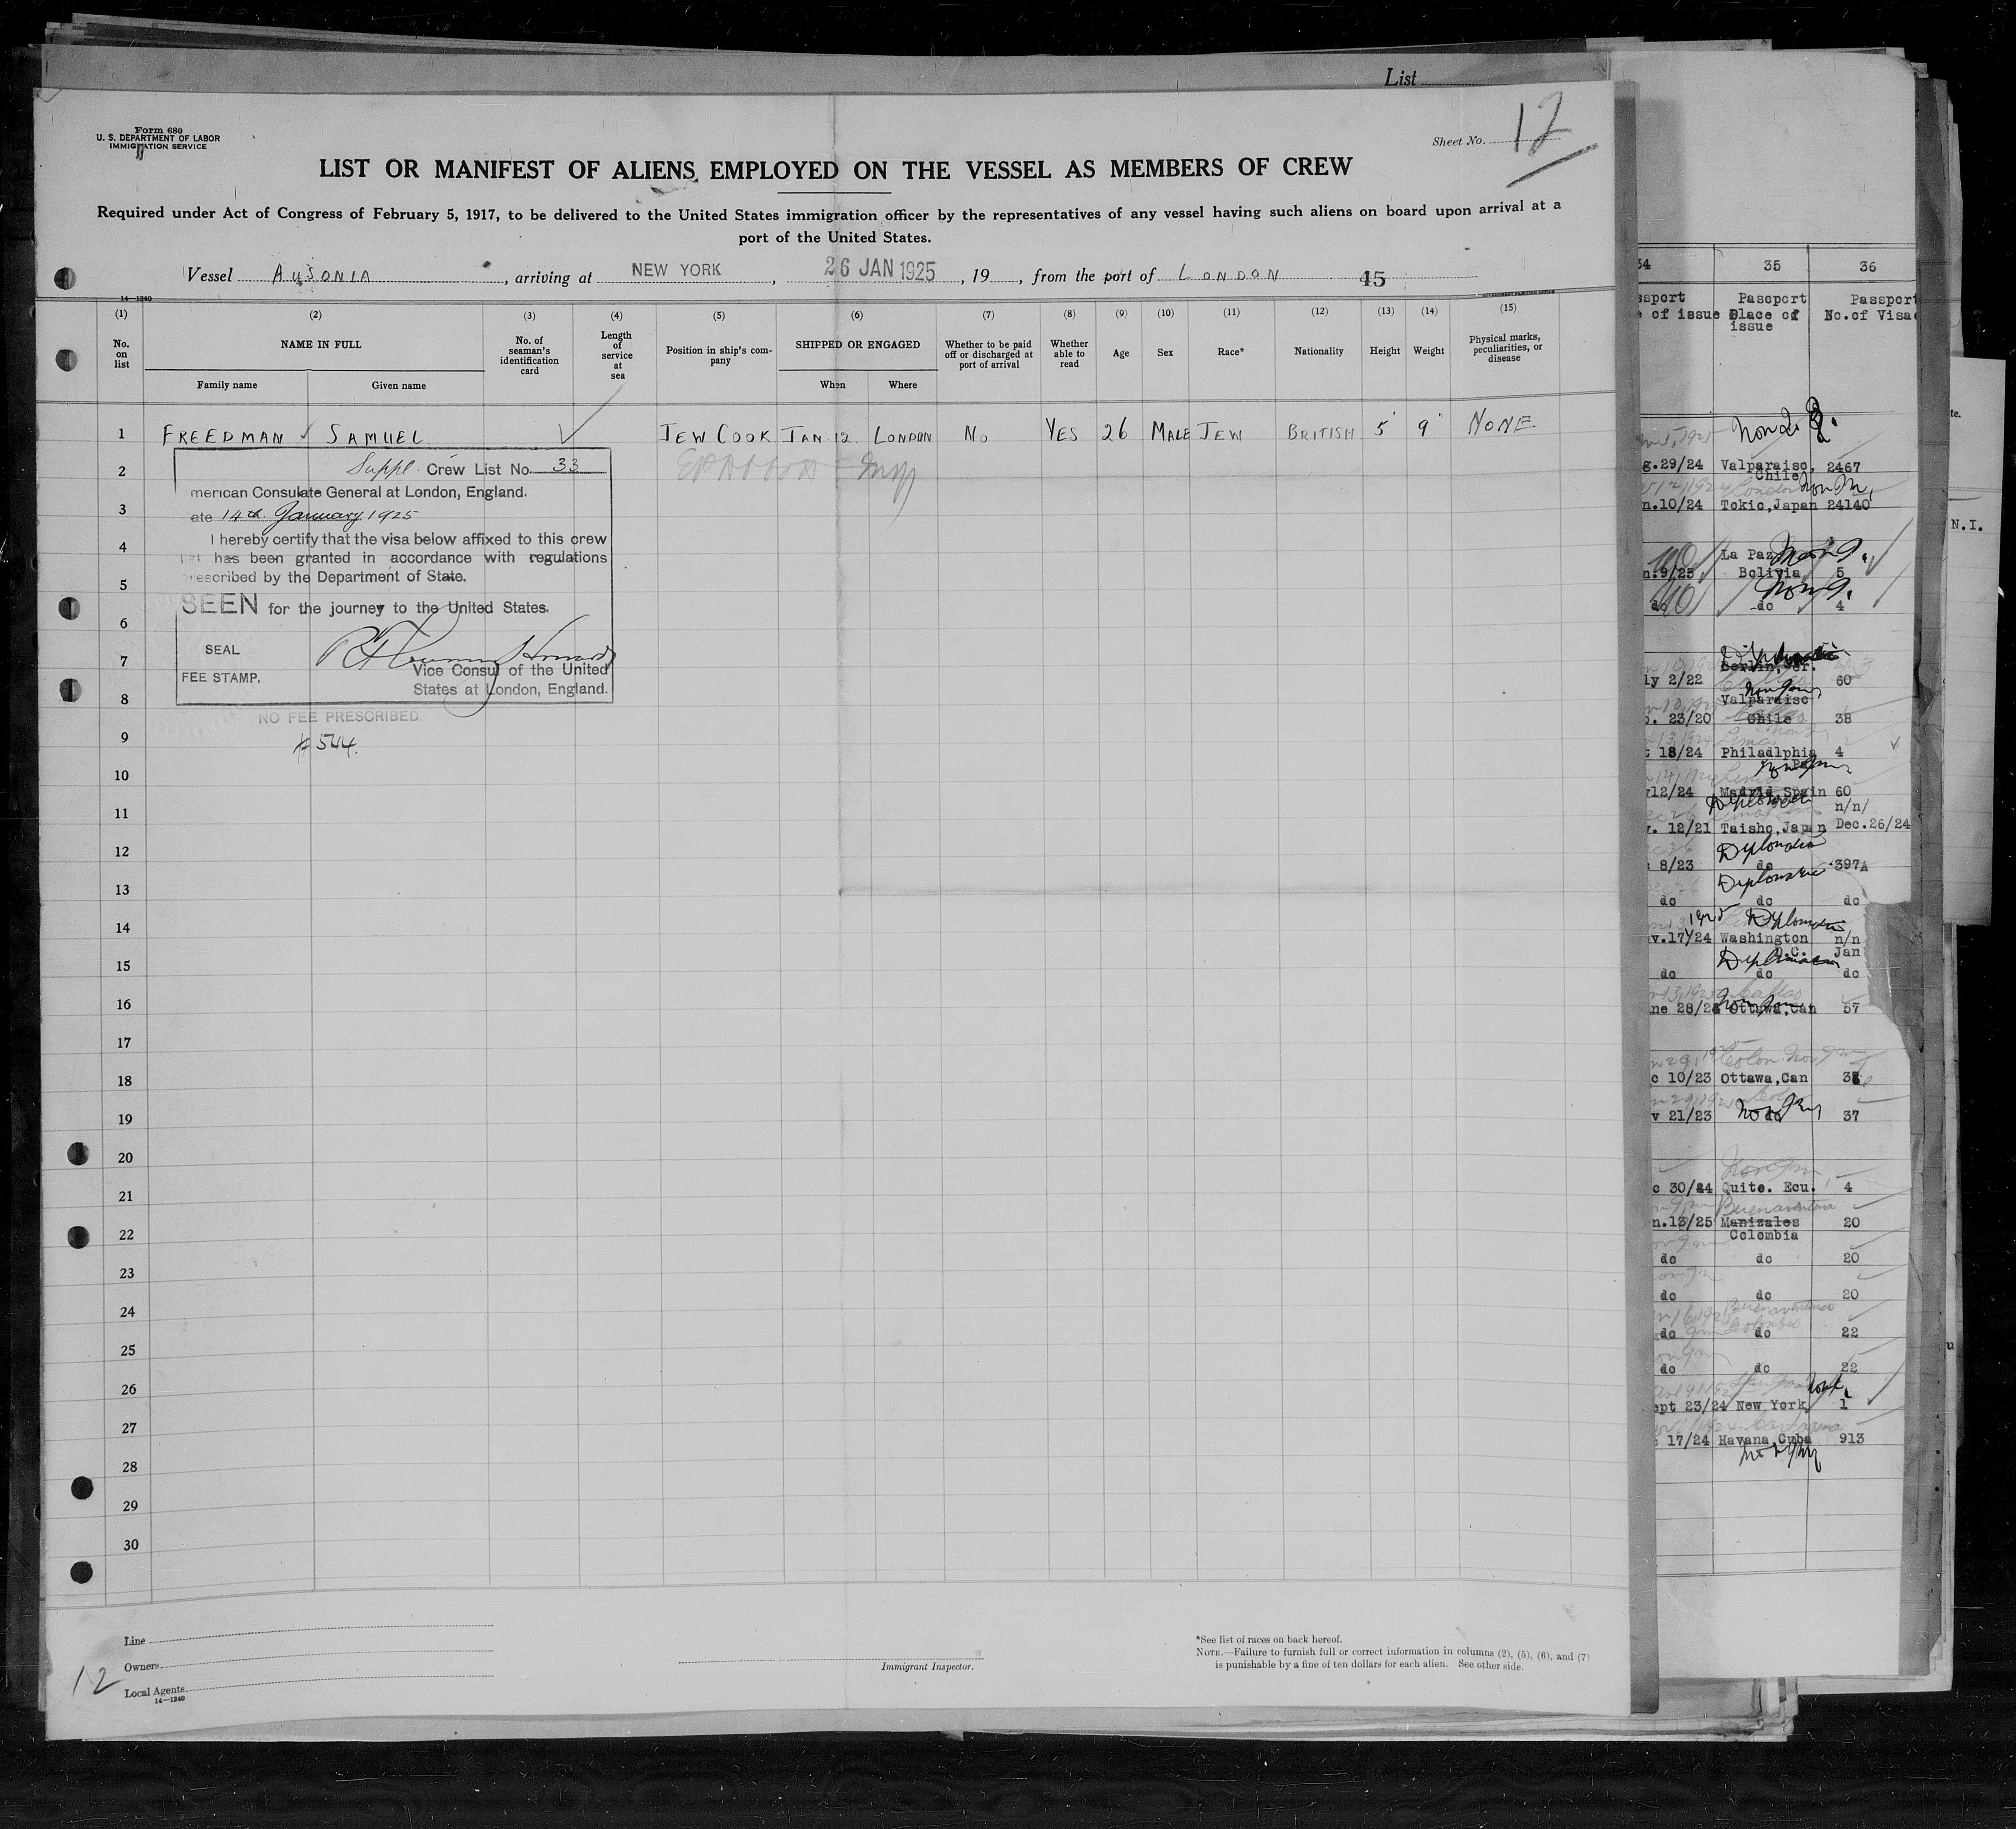 List
Form 680
U. S. DEPARTMENT OF LABOR
IMMIGRATION SERVICE
Sheet No. 12
LIST OR MANIFEST OF ALIENS EMPLOYED ON THE VESSEL AS MEMBERS OF CREW
Required under Act of Congress of February 5, 1917, to be delivered to the United States immigration officer by the representatives of any vessel having such aliens on board upon arrival at a
port of the United States.
Vessel AUSONIA, arriving at NEW YORK, 26 JAN 1925, 19, from the port of LONDON 45
14—1240
(1) (2) (3) (4) (5) (6) (7) (8) (9) (10) (11) (12) (13) (14) (15)
No. on list
NAME IN FULL
Family name
Given name
No. of seaman's identification card
Length of service at sea
Position in ship's company
SHIPPED OR ENGAGED
When
Where
Whether to be paid off or discharged at port of arrival
Whether able to read
Age
Sex
Race*
Nationality
Height
Weight
Physical marks, peculiarities, or disease
1 FREEDMAN SAMUEL JEW COOK JAN 12 LONDON NO YES 26 MALE JEW BRITISH 5' 9" NONE
2
3
4
5
6
7
8
9
10
11
12
13
14
15
16
17
18
19
20
21
22
23
24
25
26
27
28
29
30
Suppl. Crew List No. 33
merican Consulate General at London, England.
ate 14th January 1925
I hereby certify that the visa below affixed to this crew
list has been granted in accordance with regulations
prescribed by the Department of State.
SEEN for the journey to the United States.
SEAL
FEE STAMP.
Vice Consul of the United
States at London, England.
NO FEE PRESCRIBED.
#544.
Line
Owners
Local Agents
14—1240
12
Immigrant Inspector.
*See list of races on back hereof.
NOTE.—Failure to furnish full or correct information in columns (2), (5), (6), and (7)
is punishable by a fine of ten dollars for each alien. See other side.
34 35 36
ssport
e of issue
Passport
Place of
issue
Passport
No. of Visa
g.29/24 Valparaiso, 2467
Chile
n.10/24 Tokio, Japan 24140
La Paz
n.9/25 Bolivia 5
do do 4
Berlin, Ger.
ly 2/22 60
Valparaiso
. 23/20 Chile 38
t 18/24 Philadlphia 4
12/24 Madrid, Spain 60
n/n/
. 12/21 Taisho, Japan Dec.26/24
Diplomatic
8/23 do 397A
Diplomatic
do do do
Diplomatic
v.17/24 Washington n/n
D.C. Jan
Diplomatic
do do do
ne 28/24 Ottawa, Can 57
c 10/23 Ottawa, Can
v 21/23 do 37
c 30/24 Quito. Ecu. 4
Buenaventura
n.13/25 Manizales 20
Colombia
do do 20
do do 20
do do 22
do do 22
ept 23/24 New York 1
17/24 Havana Cuba 913
te.
N.I.